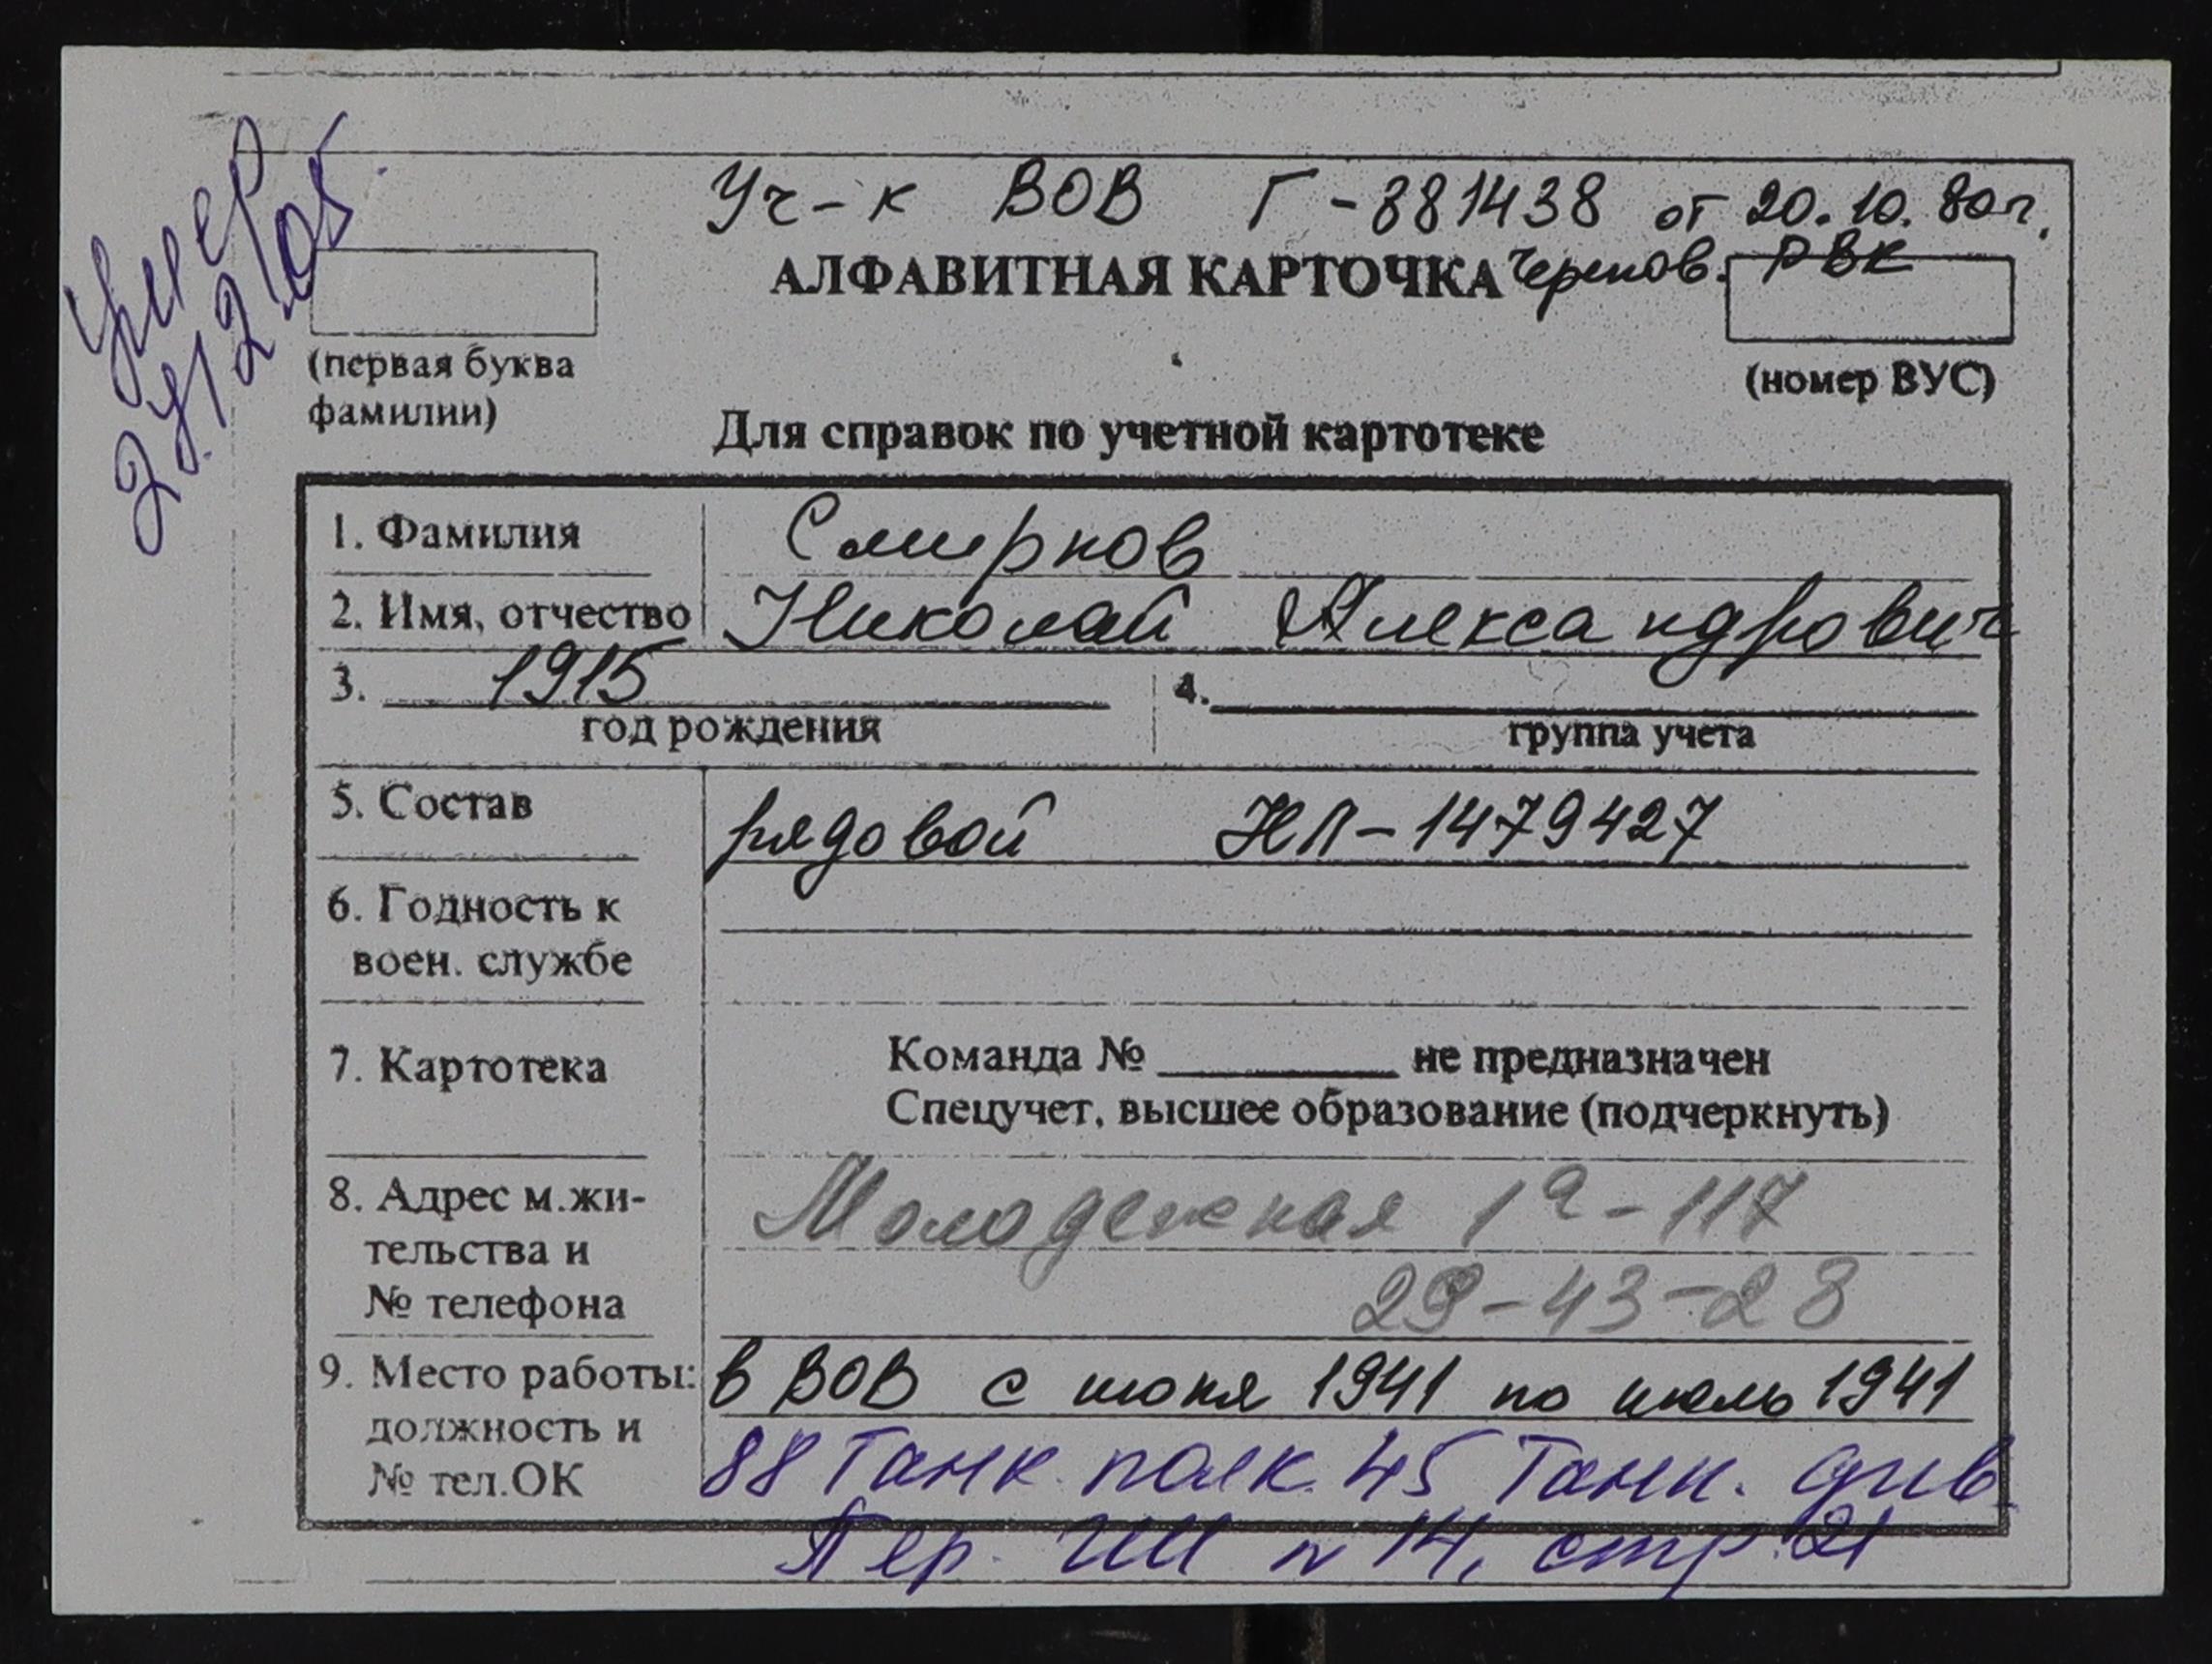 умер
24/12-05
Уч-к ВОВ Г-881438 от 20.10.80г.
АЛФАВИТНАЯ КАРТОЧКА Черепов. РВК
(первая буква
фамилии)
(номер ВУС)
Для справок по учетной картотеке
1. Фамилия Смирнов
2. Имя, отчество Николай Александрович
3. 1915 4.
год рождения группа учета
5. Состав рядовой НЛ-1479427
6. Годность к
воен. службе
7. Картотека Команда № ________ не предназначен
Спецучет, высшее образование (подчеркнуть)
8. Адрес м.жи- Молодежная 1а-117
тельства и
№ телефона 29-43-28
9. Место работы: в ВОВ с июня 1941 по июль 1941
должность и 88 Танк. полк. 45 Танк. див.
№ тел.ОК
Пер. ГШ № 14, стр. 21